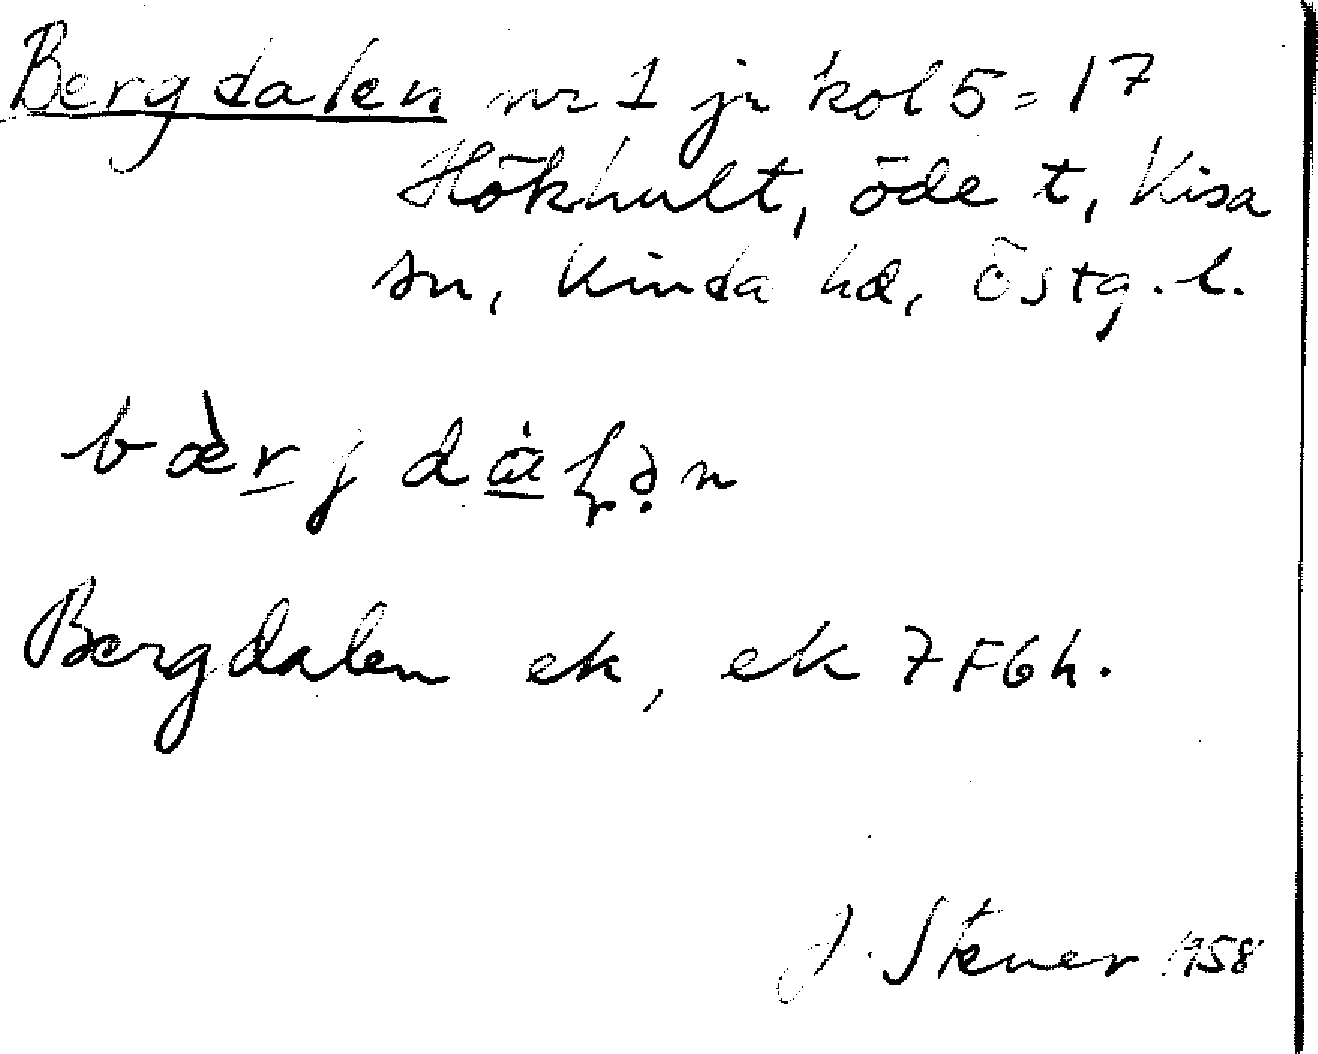 Bergdalen nr 1 jr kol 5 = 17
Hökhult, öde t, Kisa
sn, Kinda hd, Östg. l.
bæ̀r̲j dȧ̲ɽə̣n
Bergdalen ek, ek 7F6h.
J. Stener 1958